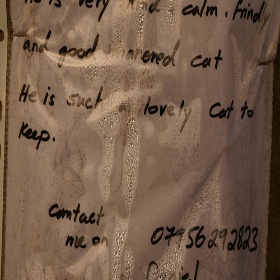 He is very kind calm, friendly
and good mannered cat
He is such a lovely cat to
keep.
contact
me on 07956292823